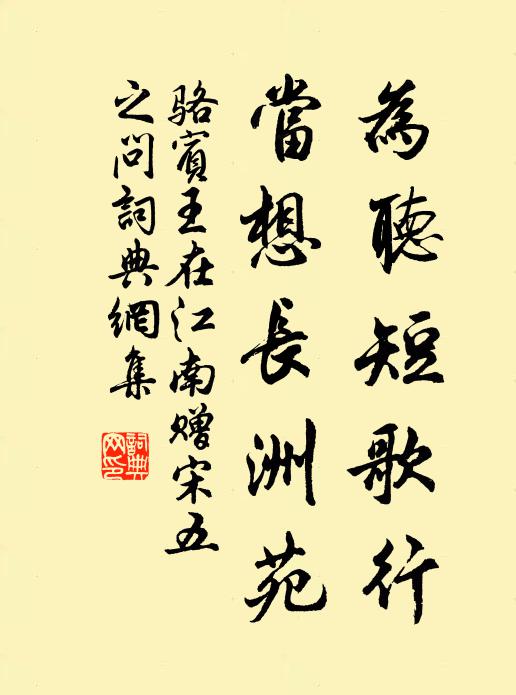 為聽短歌行
當想長洲苑
駱賓王在江南贈宋五
之問詞典網集
詞典
网印